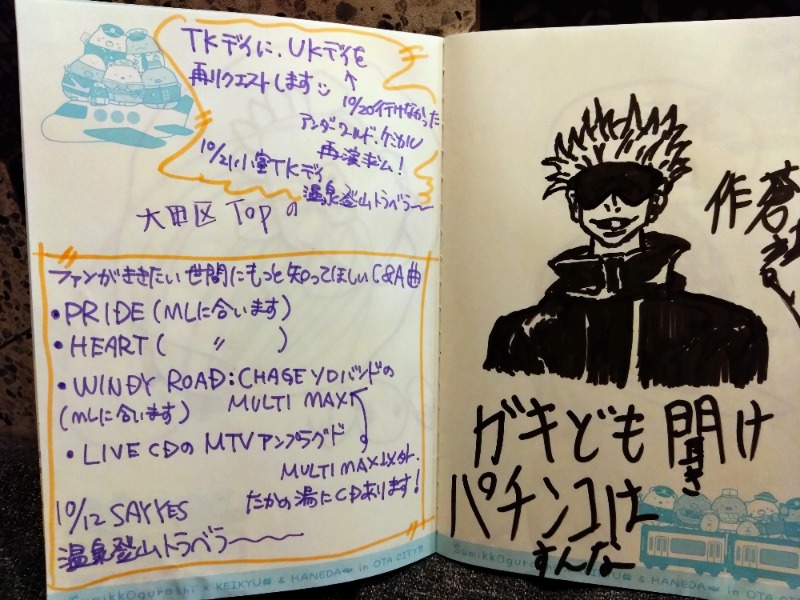 TKデイに、UKデイを
再リクエストします
10/20行けなかった
アンダーワールド、ケミカル
再演求ム！
10/21小室TKデイ
温泉登山トラベラー
大田区 TOPの
ファンがききたい世間にもっと知ってほしいC&A曲
・PRIDE(MLに合います)
・HEART( 〃 )
・WINDY ROAD:CHAGE YOバンドの
(MLに合います) MULTI MAX
・LIVE CDの MTVアンプラグド
MULTI MAX以外、
たかの湯にCDあります！
10/12 SAY YES
温泉登山トラベラー
SumikkOgurashi × KEIKYU & HANEDA in OTA CITY
作
ガキども聞け
パチンコは
すんな
SumikkOgurashi × KEIKYU & HANEDA in OTA CITY